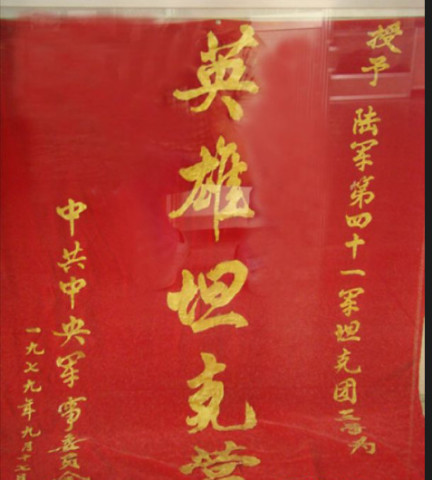 授予
陆军第四十一军坦克团二营为
英雄坦克营
中共中央军事委员会
一九七九年九月十七日